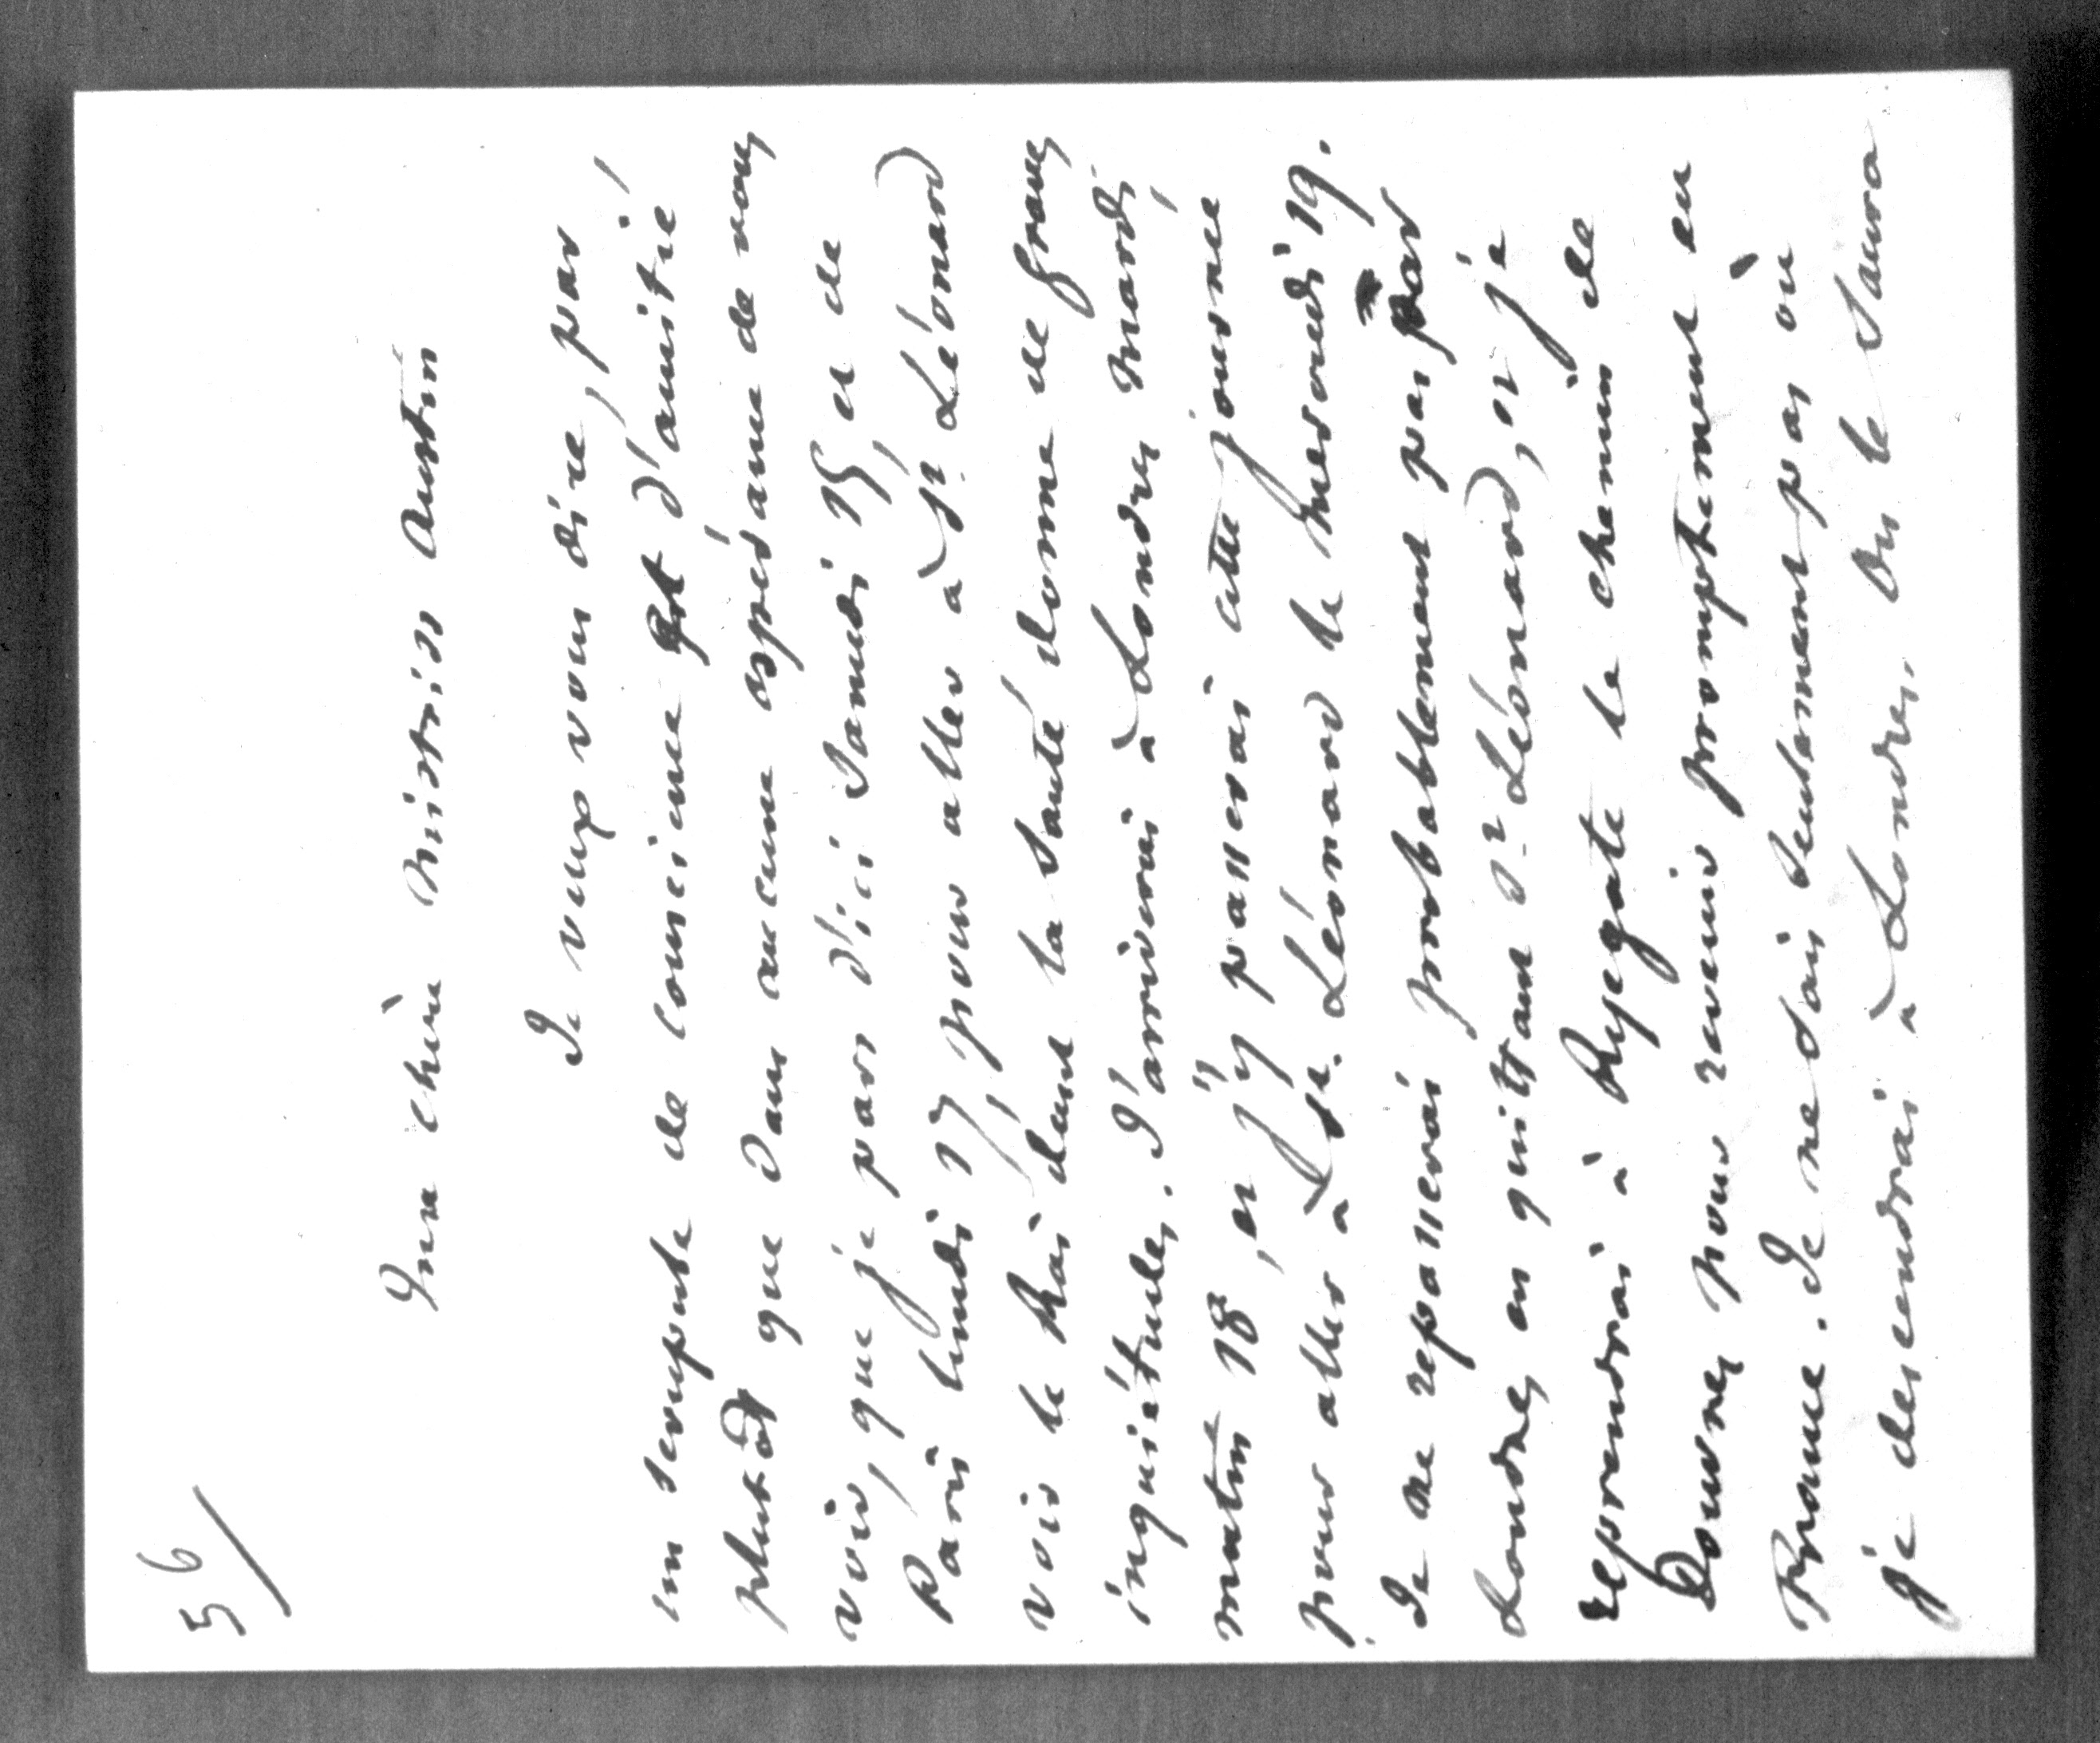 56
Ma chère Mistriss Austin
Je veux vous dire, par
un scrupule de conscience et d'amitié
plutôt que dans aucune espérance de vous
voir, que je pars d'ici Samedi 15, et de
Paris lundi 17, pour aller à St. Léonard
voir le Roi dont la Santé donne de graves
inquiétudes. J'arriverai à Londres mardi
matin 18, et j'y passerai cette journée
pour aller à St. Léonard le Mercredi 19.
Je ne repasserai probablement pas par
Londres en quittant St Léonard, et je
reprendrai à Ryegate le chemin de
Douvres pour revenir promptement en
France. Je ne sais seulement pas où
je descendrai à Londres. On le Saura